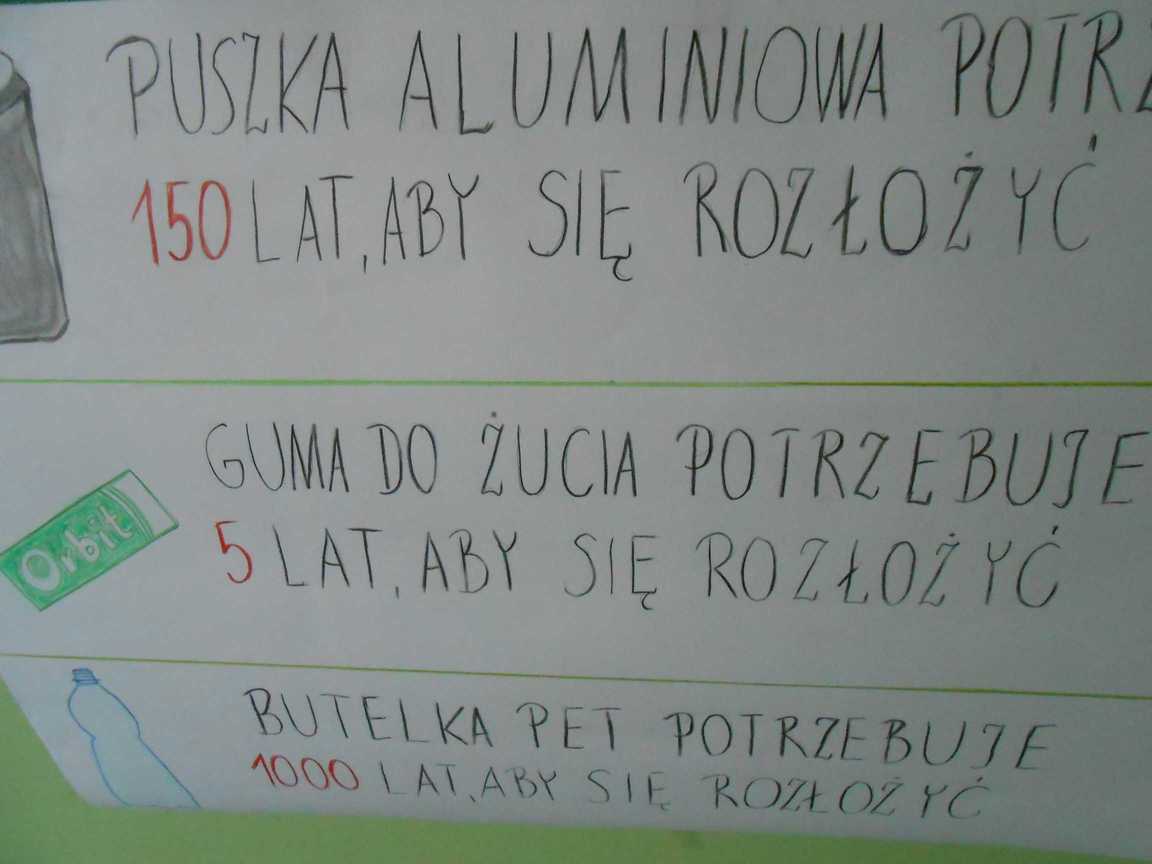 PUSZKA ALUMINIOWA POTRZ
150 LAT, ABY SIĘ ROZŁOŻYĆ
GUMA DO ŻUCIA POTRZEBUJE
Orbit
5 LAT, ABY SIĘ ROZŁOŻYĆ
BUTELKA PET POTRZEBUJE
1000 LAT, ABY SIĘ ROZŁOŻYĆ